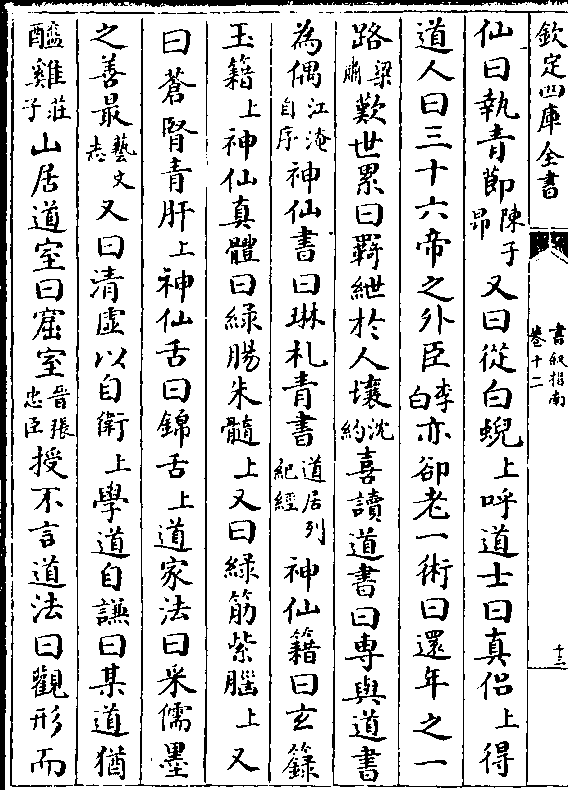 欽定四庫全書
書敘指南
卷十二
十三
仙曰執青節陳子昂又曰從白蜺上呼道士曰真侣上得
道人曰三十六帝之外臣李白亦卻老一術曰還年之一
路梁肅歎世累曰羇紲於人壤沈約喜讀道書曰専與道書
為偶江淹自序神仙書曰琳札青書道居列紀經神仙籍曰玄籙
玉籍上神仙真體曰緑腸朱髓上又曰緑筋紫腦上又
曰蒼腎青肝上神仙舌曰錦舌上道家法曰采儒墨
之善最藝文志又曰清虛以自衛上學道自謙曰某道猶
醯雞莊子山居道室曰窟室晉張忠臣授不言道法曰觀形而